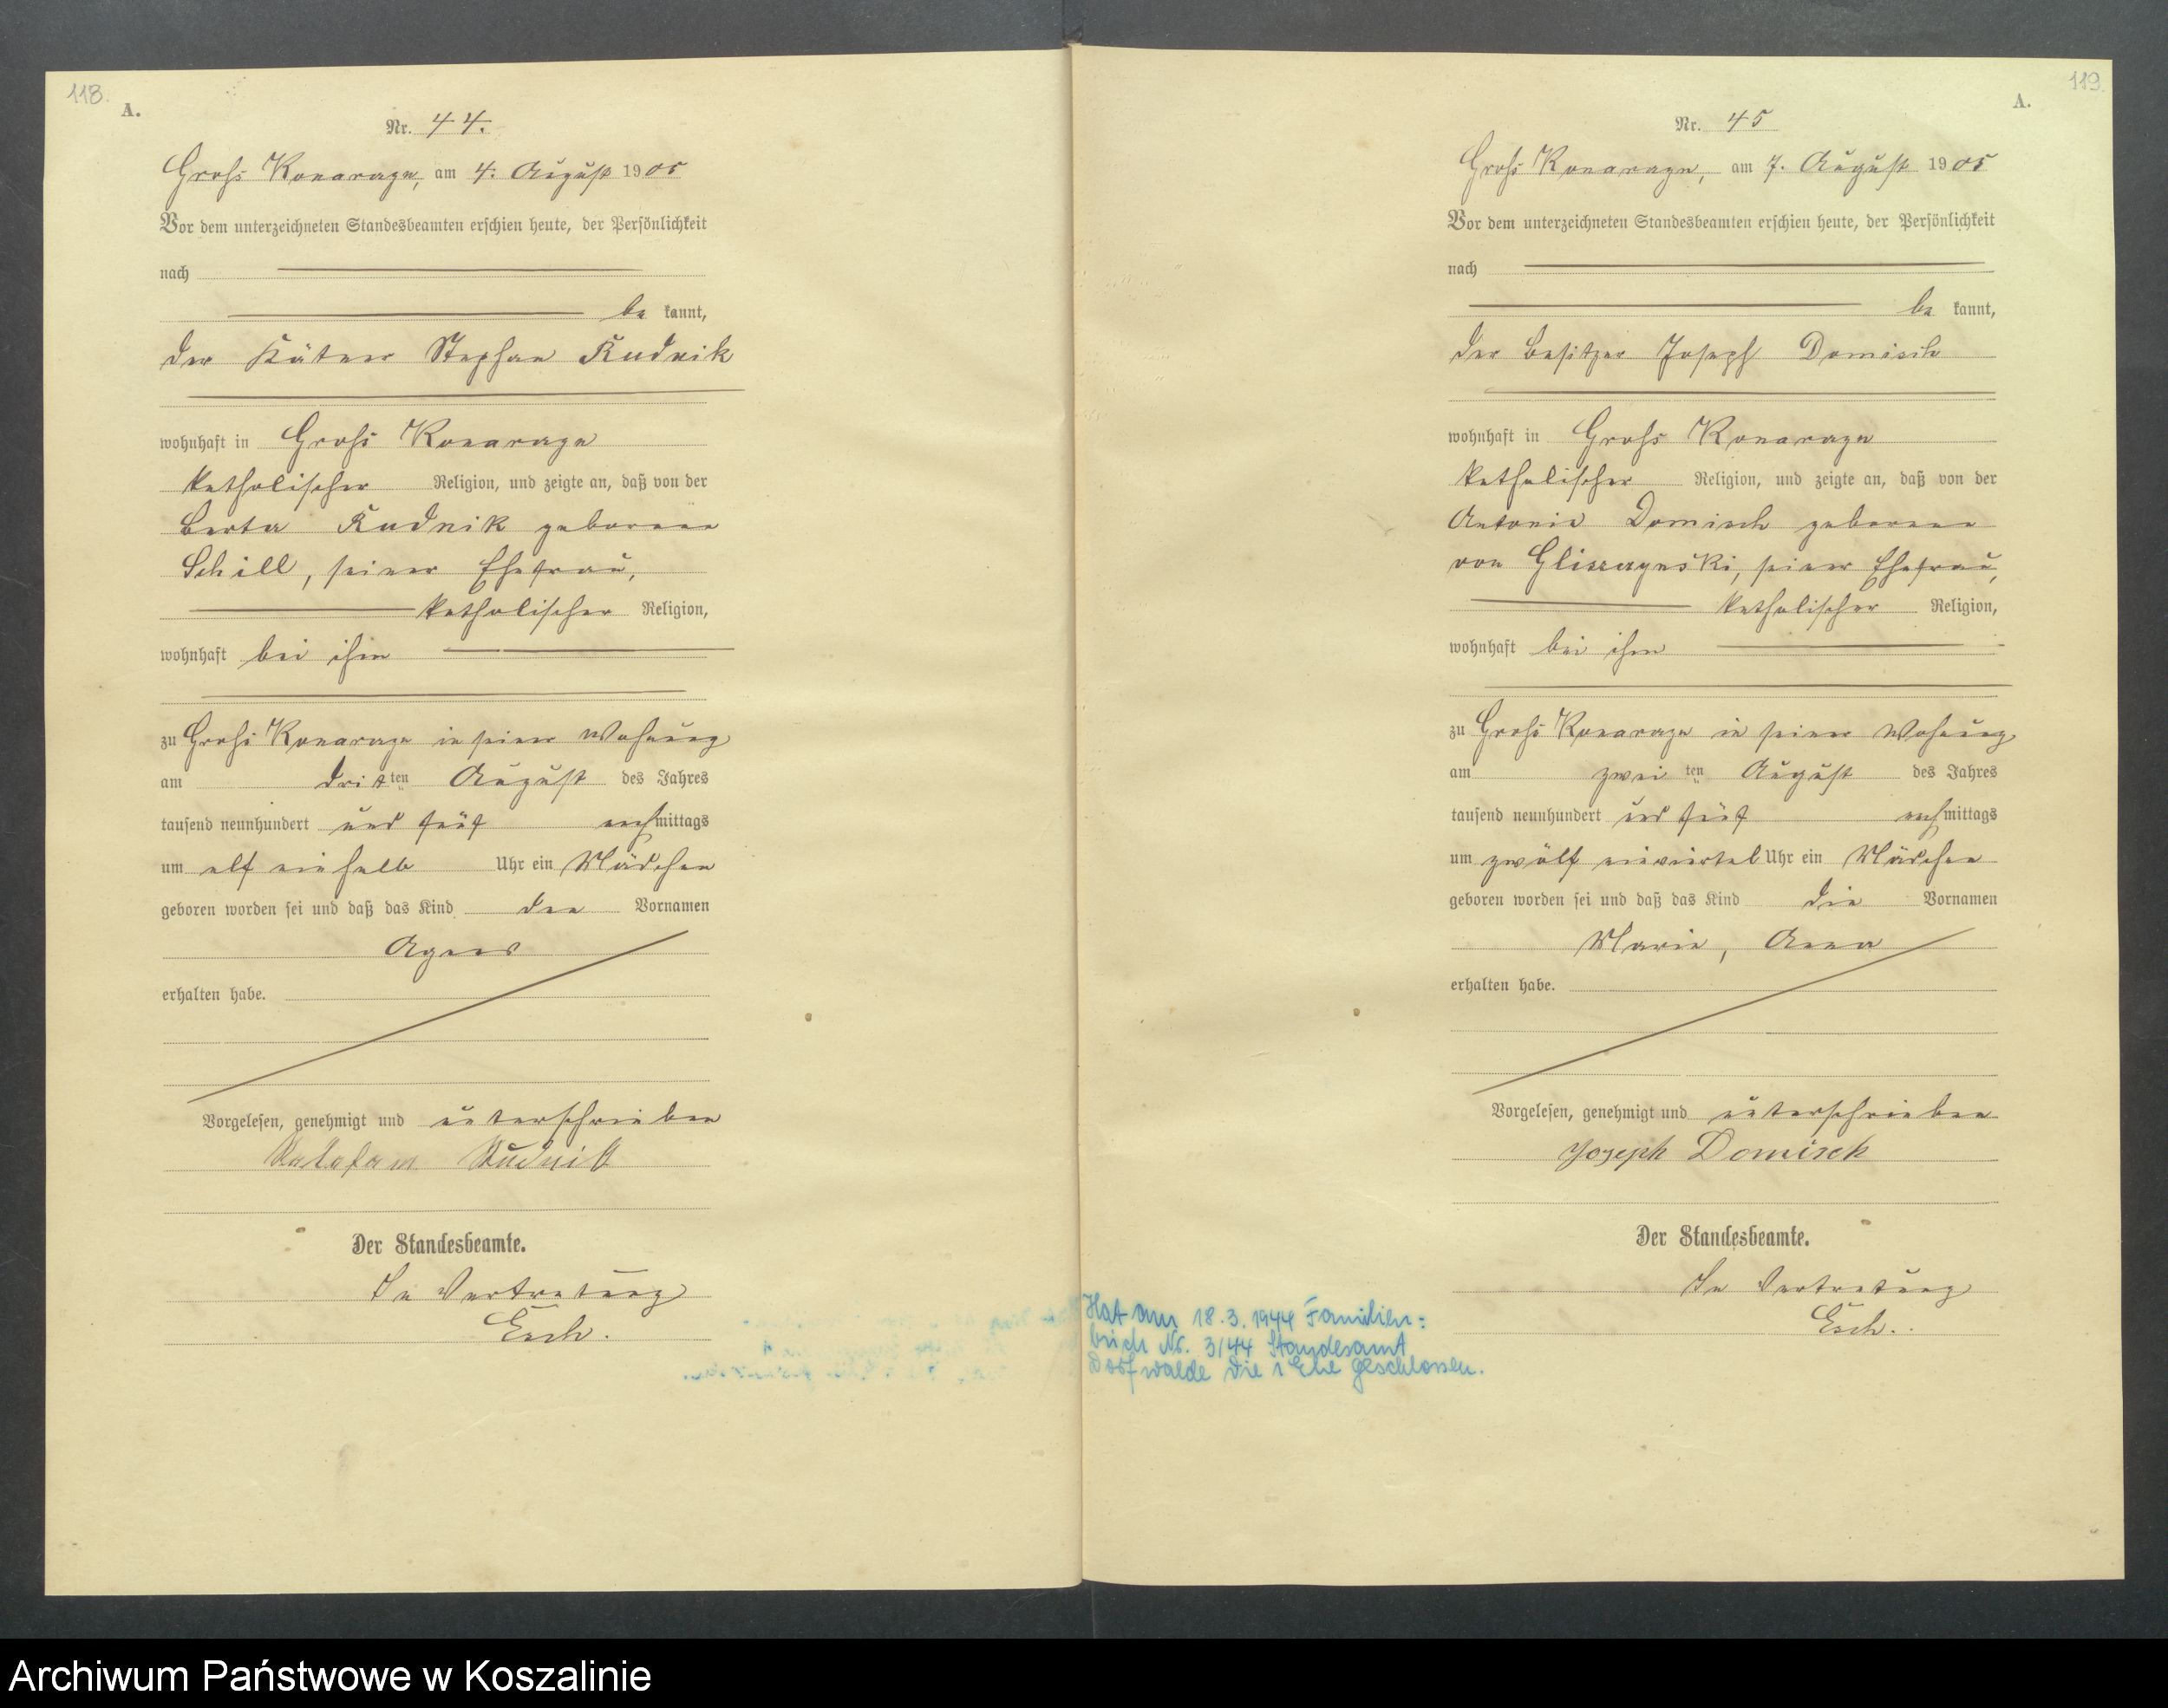 118.
A.
Nr. 44.
Groß Konarzyn, am 4. August 1905
Vor dem unterzeichneten Standesbeamten erschien heute, der Persönlichkeit
nach
be kannt,
der Kätner Stephan Rudnik
wohnhaft in Groß Konarzyn
katholischer Religion, und zeigte an, daß von der
Berta Rudnik geborene
Schill, seiner Ehefrau,
katholischer Religion,
wohnhaft bei ihm
zu Groß Konarzyn in seiner Wohnung
am dritten August des Jahres
tausend neunhundert und fünf nachmittags
um elf ein halb Uhr ein Mädchen
geboren worden sei und daß das Kind den Vornamen
Agnes
erhalten habe.
Vorgelesen, genehmigt und unterschrieben
Rudnik
Der Standesbeamte.
In Vertretung
Esch.
119.
A.
Nr. 45
Groß Konarzyn, am 7. August 1905
Vor dem unterzeichneten Standesbeamten erschien heute, der Persönlichkeit
nach
be kannt,
der Besitzer Joseph Domisch
wohnhaft in Groß Konarzyn
katholischer Religion, und zeigte an, daß von der
Antonie Domisch geborene
von Gliszczynski, seiner Ehefrau,
katholischer Religion,
wohnhaft bei ihm
zu Groß Konarzyn in seiner Wohnung
am zweiten August des Jahres
tausend neunhundert und fünf nachmittags
um zwölf einviertel Uhr ein Mädchen
geboren worden sei und daß das Kind die Vornamen
Marie, Anna
erhalten habe.
Vorgelesen, genehmigt und unterschrieben
Joseph Domisch
Der Standesbeamte.
In Vertretung
Esch.
Hat am 18.3.1944 Familien=
buch Nr. 3/44 Standesamt
Dorfwalde die 1 Ehe geschlossen.
Archiwum Państwowe w Koszalinie